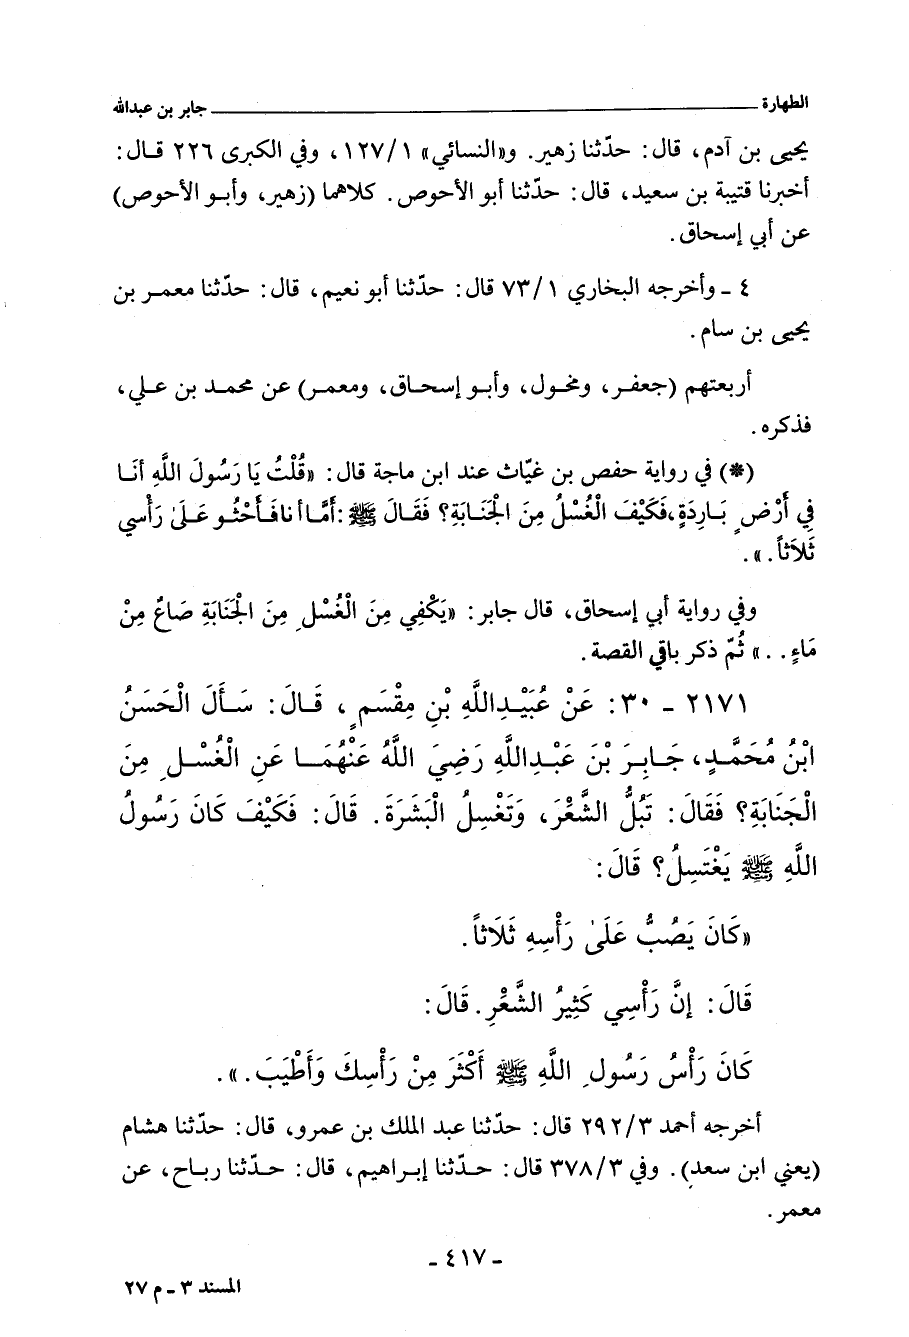 الطهارة ــــــــــــــــــــ جابر بن عبدالله
يحيى بن آدم، قال: حدّثنا زهير. و«النسائي» ١٢٧/١، وفي الكبرى ٢٢٦ قال:
أخبرنا قتيبة بن سعيد، قال: حدّثنا أبو الأحوص. كلاهما (زهير، وأبو الأحوص)
عن أبي إسحاق.
٤ ـ وأخرجه البخاري ٧٣/١ قال: حدّثنا أبو نعيم، قال: حدّثنا معمر بن
يحيى بن سام.
أربعتهم (جعفر، ومخول، وأبو إسحاق، ومعمر) عن محمد بن علي،
فذكره.
(*) في رواية حفص بن غيّاث عند ابن ماجة قال: «قُلْتُ يَا رَسُولَ اللَّهِ أَنَا
فِي أَرْضٍ بَارِدَةٍ، فَكَيْفَ الْغُسْلُ مِنَ الْجَنَابَةِ؟ فَقَالَ ﷺ: أَمَّا أنا فَأَحْثُو عَلَىٰ رَأْسِي
ثَلاَثاً.».
وفي رواية أبي إسحاق، قال جابر: «يَكْفِي مِنَ الْغُسْلِ مِنَ الْجَنَابَةِ صَاعٌ مِنْ
مَاءٍ. .» ثُمّ ذكر باقي القصة.
٢١٧١ ـ ٣٠: عَنْ عُبَيْدِاللَّهِ بْنِ مِقْسَمٍ، قَالَ: سَأَلَ الْحَسَنُ
ابْنُ مُحَمَّدٍ، جَابِرَ بْنَ عَبْدِاللَّهِ رَضِيَ اللَّهُ عَنْهُمَا عَنِ الْغُسْلِ مِنَ
الْجَنَابَةِ؟ فَقَالَ: تَبُلُّ الشَّعْرَ، وَتَغْسِلُ الْبَشَرَةَ. قَالَ: فَكَيْفَ كَانَ رَسُولُ
اللَّهِ ﷺ يَغْتَسِلُ؟ قَالَ:
«كَانَ يَصُبُّ عَلَىٰ رَأْسِهِ ثَلَاثاً.
قَالَ: إِنَّ رَأْسِي كَثِيرُ الشَّعْرِ. قَالَ:
كَانَ رَأْسُ رَسُولِ اللَّهِ ﷺ أَكْثَرَ مِنْ رَأْسِكَ وَأَطْيَبَ.».
أخرجه أحمد ٢٩٢/٣ قال: حدّثنا عبد الملك بن عمرو، قال: حدّثنا هشام
(يعني ابن سعد). وفي ٣٧٨/٣ قال: حدّثنا إبراهيم، قال: حدّثنا رباح، عن
معمر.
ـ ٤١٧ ـ
المسند ٣ ـ م ٢٧